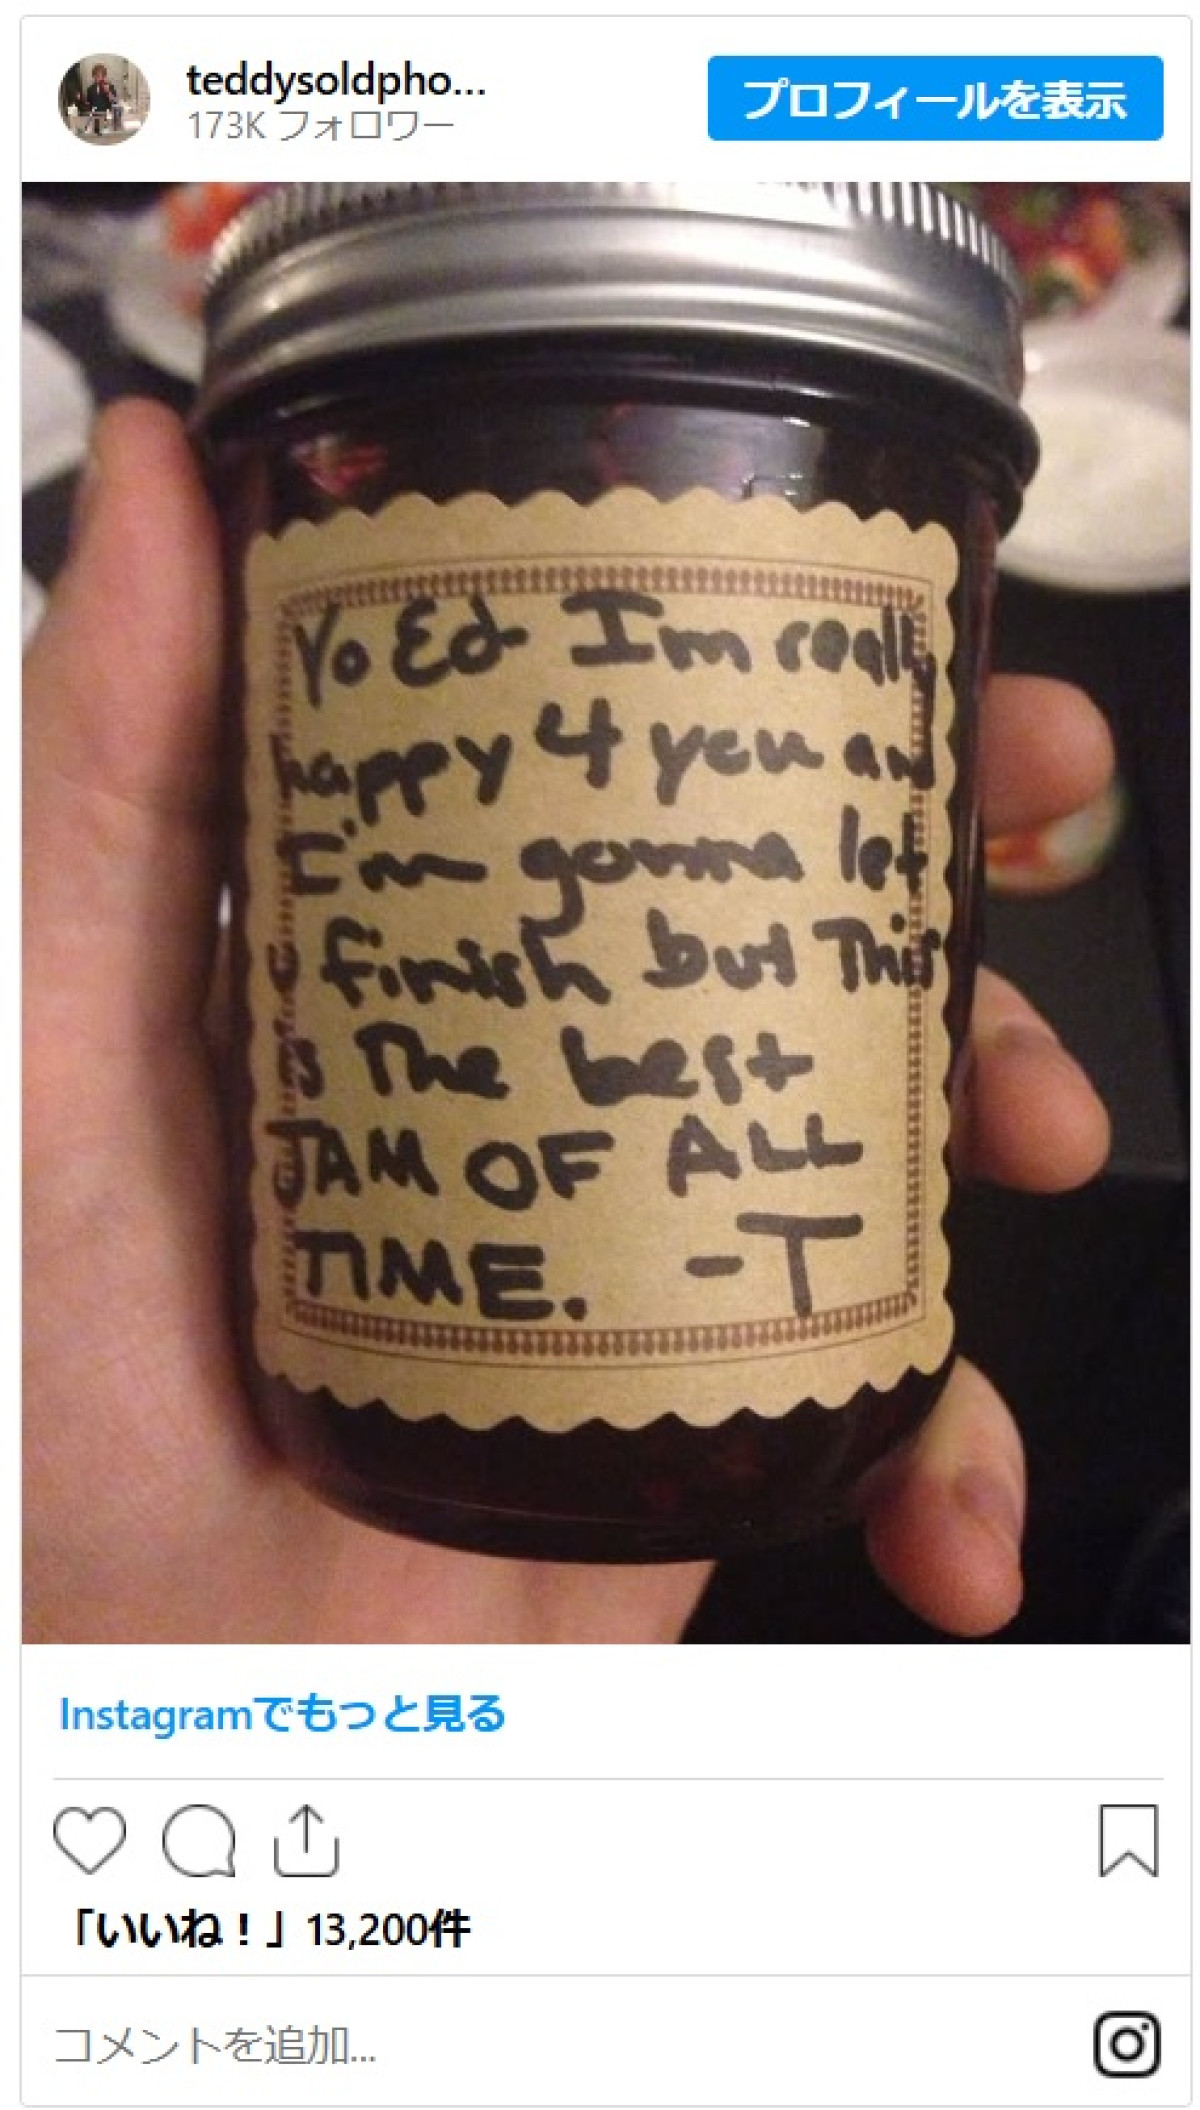 teddysoldpho...
173K フォロワー
プロフィールを表示
Yo Ed I'm really
happy 4 you and
I'm gonna let
U finish but This
is The best
JAM OF ALL
TIME. -T
Instagramでもっと見る
「いいね！」13,200件
コメントを追加...